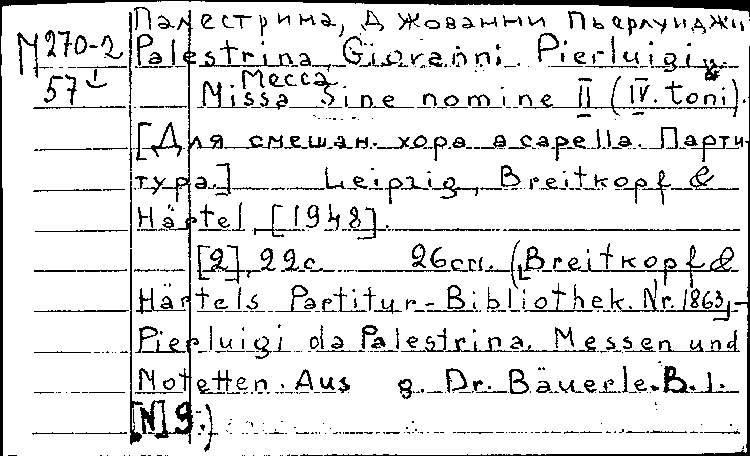 Палестрина, Джованни Пьерлуиджи
M 270-2
57
Palestrina, Giovanni Pierluigi
Месса
Missa Sine nomine II (IV. toni).
[Для смешан. хора a capella. Парти-
тура.] Leipzig, Breitkopf &
Härtel, [1948].
[2], 22 с. 26 см. (Breitkopf &
Härtels Partitur-Bibliothek. Nr. 1863) -
Pierluigi da Palestrina. Messen und
Motetten. Aus g. Dr. Bäuerle. B. 1.
[N] 9.)